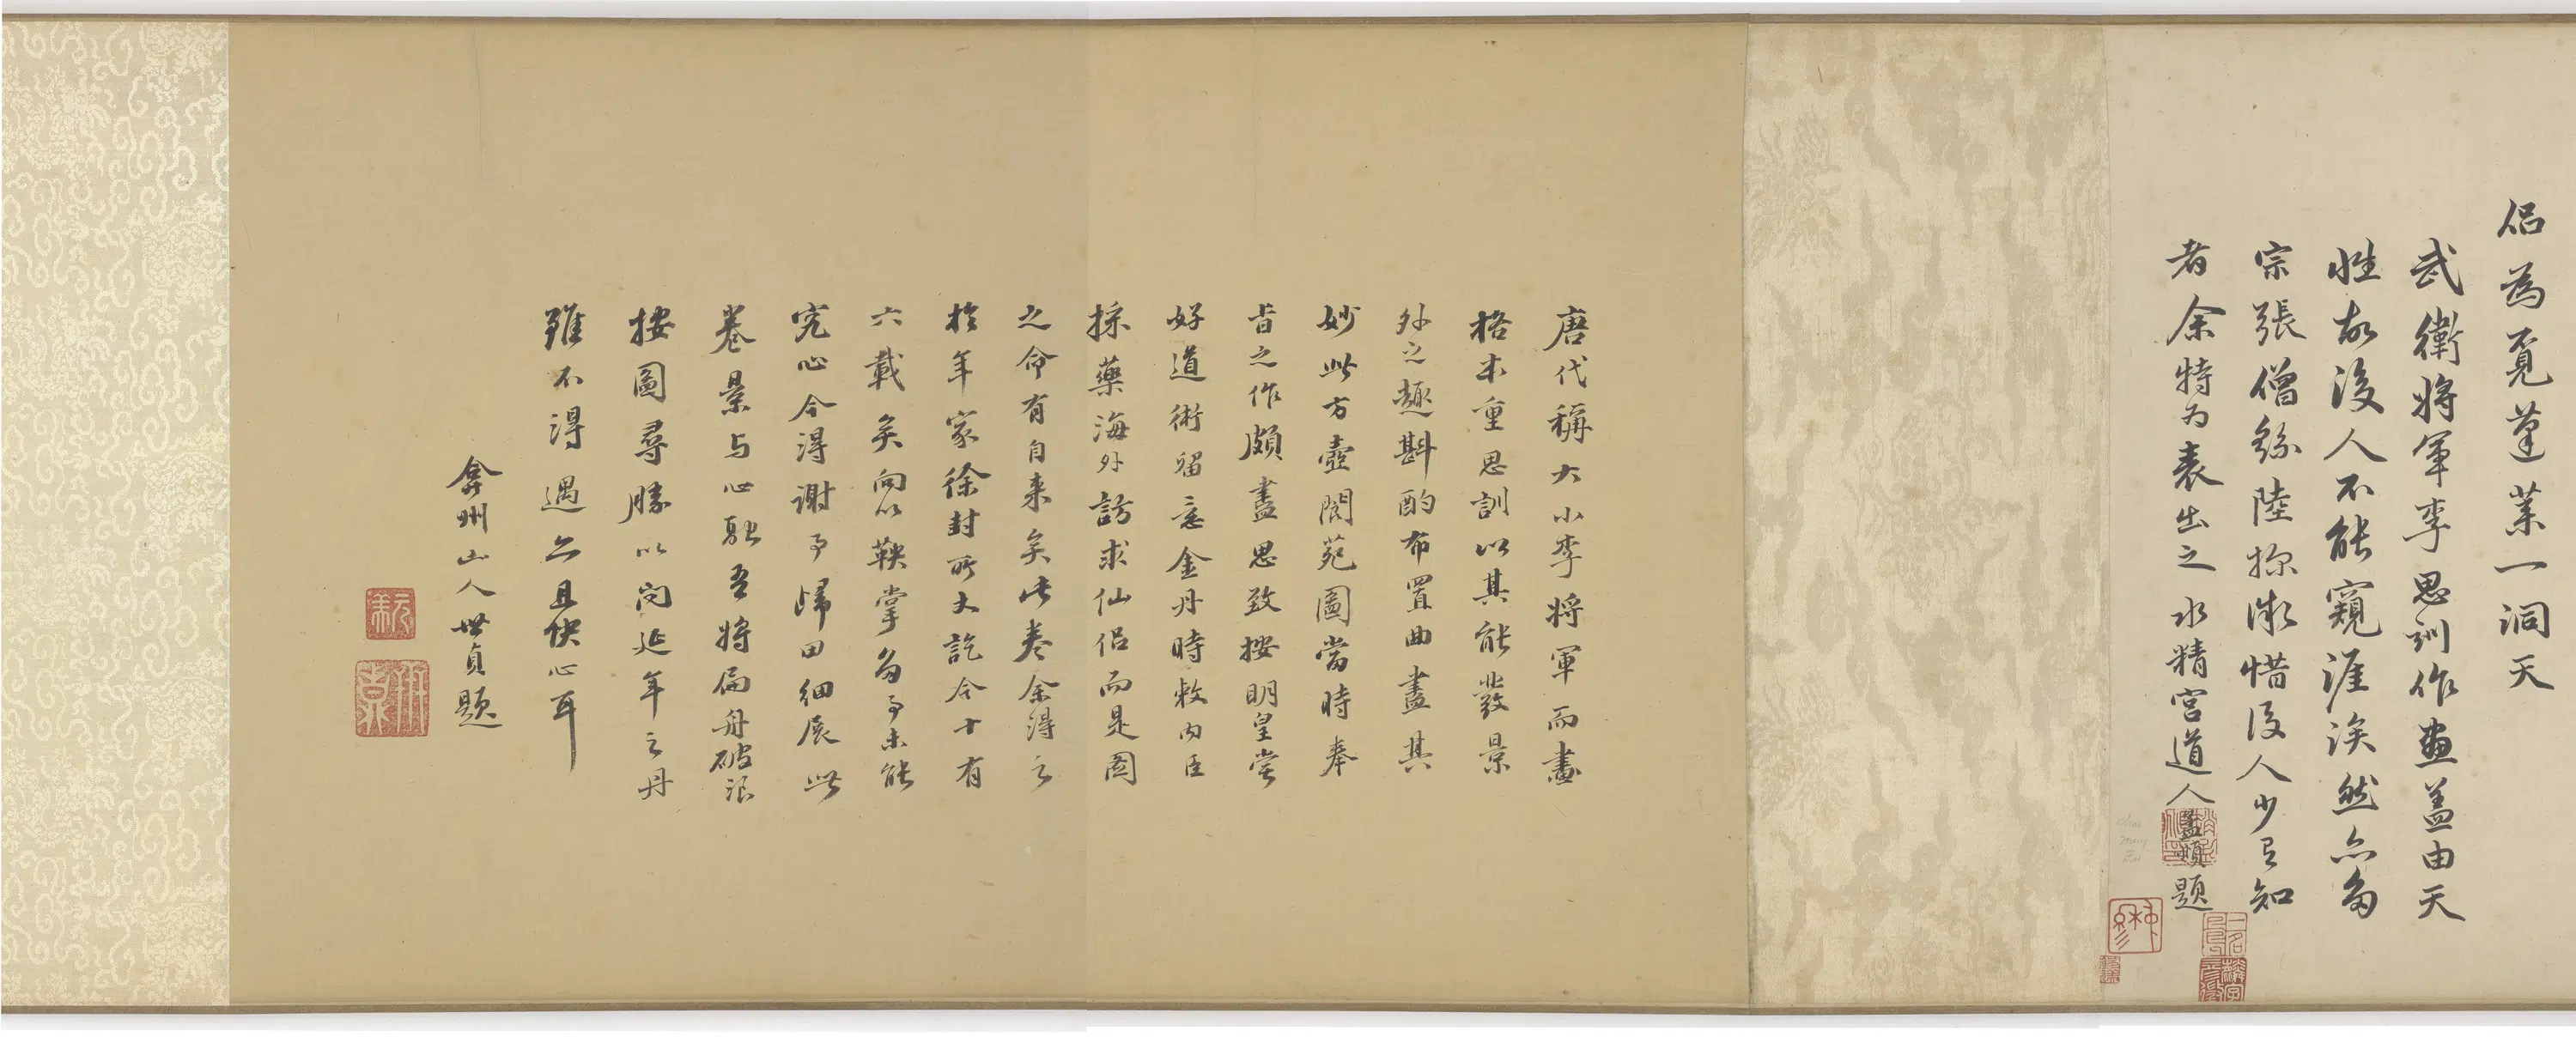 侶為覓蓬莱一洞天
武衛將軍李思訓作畫盖由天
性故後人不能窺涯涘然亦多
宗張僧繇陸探微惜後人少有知
者余特为表出之水精宮道人孟頫題
唐代稱大小李将軍而畫
格本重思訓以其能發景
外之趣斟酌布置曲盡其
妙此方壺閬苑圖當時奉
旨之作頗盡思致按明皇嘗
好道術留意金丹時敕内臣
採藥海外訪求仙侣而是圖
之命有自来矣此卷余得之
於年家徐封所丈訖今十有
六載矣向以鞅掌多事未能
究心今得谢事歸田細展此
卷景与心融吾將扁舟破浪
按圖尋勝以问延年之丹
雖不得遇亦且快心耳
弇州山人世貞題
元美